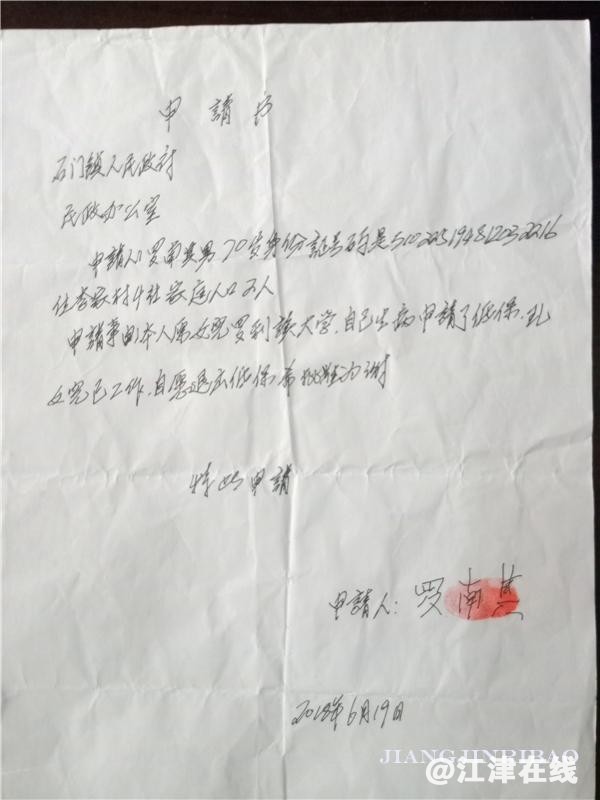 申請书
石门镇人民政府
民政办公室
申請人罗南英男70岁身份証号码是510225194812032216
住李家村4社家庭人口2人
申請事由本人因女児罗利读大学,自己生病申請了低保.现
女児已工作.自愿退出低保希批准为谢
特此申請
申請人:罗南英
2018年6月19日
JIANGJINRIBAO
@江津在线